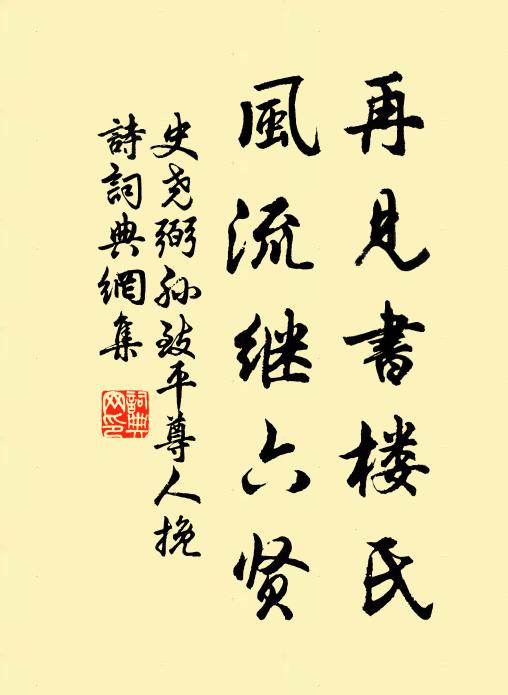 再见書楼氏
風流继六贤
史尧弼孙致平尊人挽
詩詞典網集
詞典网印